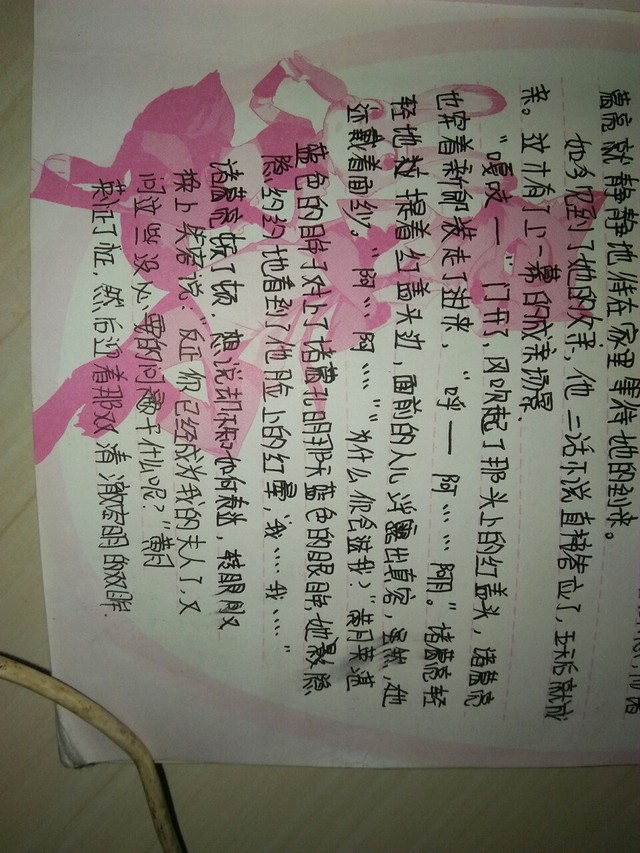 葛亮就静静地待在家里等待她的到来。
如今见到了她的父亲，他二话不说直接答应了，五天后就成
亲。这才有了上一幕的成亲场景。
“嘎吱——”门开了，风吹起了那头上的红盖头，诸葛亮
也穿着新郎装走了进来，“呼——阿……阿。”诸葛亮轻
轻地提着红盖头边，面前的人儿浮露出真容，虽然，她
还戴着面纱。“阿…阿……”“为什么你会选我？”黄月英
蓝色的眸子对上了诸葛孔明那天蓝色的眼眸，她隐
隐约约地看到了他脸上的红晕，“我……我……”
诸葛亮顿了顿，想说却不知如何表达，转眼又
换上笑容说：“反正你已经成为我的夫人了，又
问这些没必要的问题干什么呢？”黄月
英怔了怔，然后迎着那双清澈透明的双眸